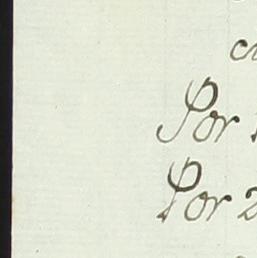 Por
Por 2